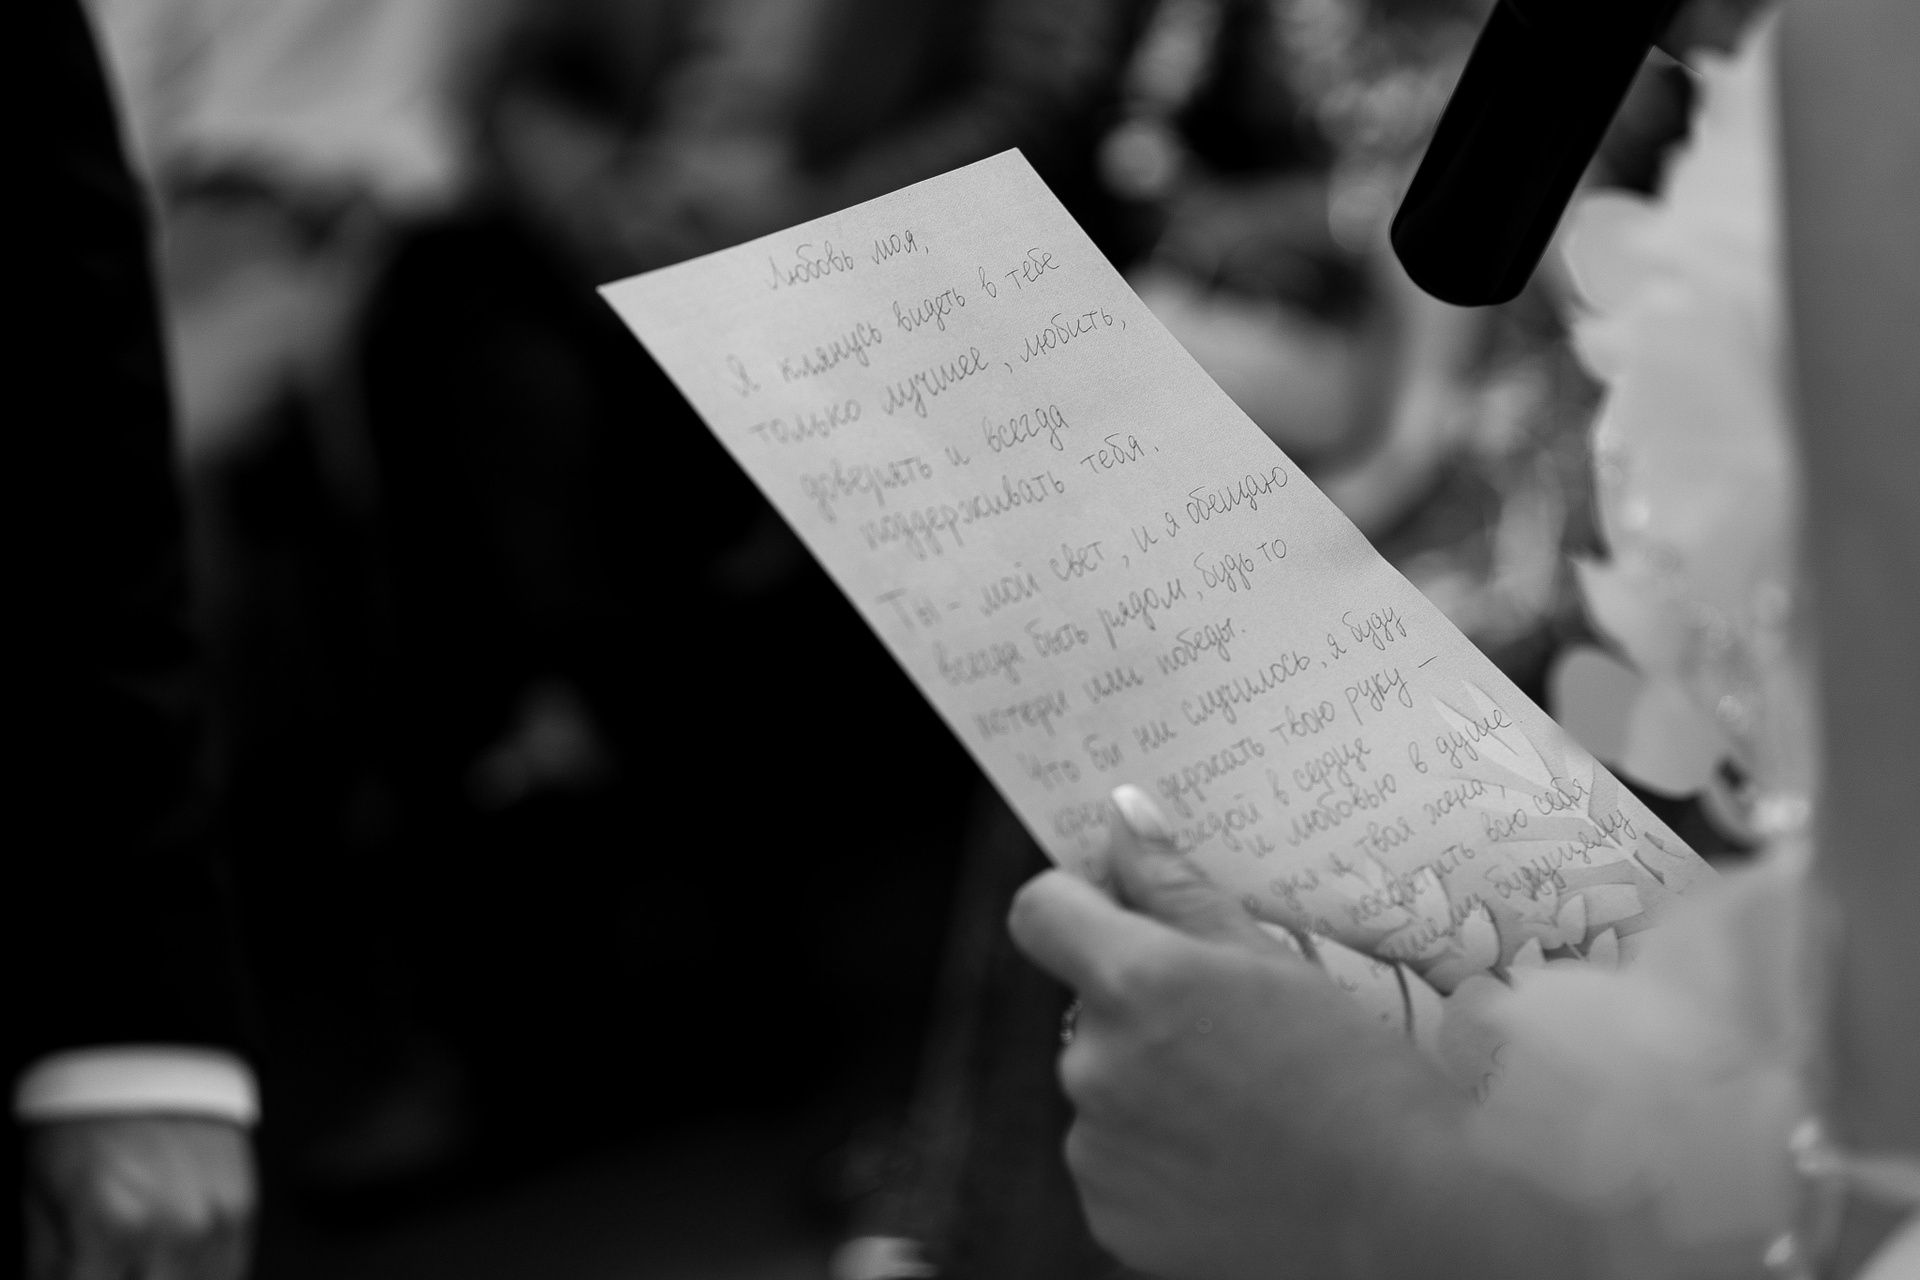 Любовь моя,
Я клянусь видеть в тебе
только лучшее, любить,
доверять и всегда
поддерживать тебя.
Ты - мой свет, и я обещаю
всегда быть рядом, будь то
потери или победы.
Что бы ни случилось, я буду
держать твою руку –
в сердце
и любовью в душе
твоя жена,
всю себя
нашему будущему